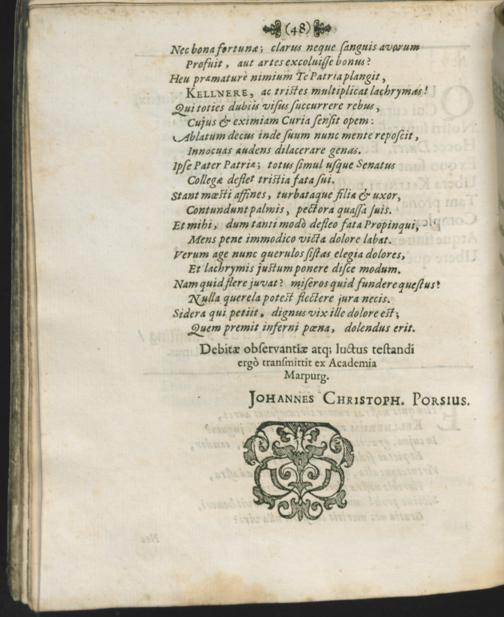 (48)
Nec bona fortunæ; clarus neque ſanguis avorum
Profuit, aut artes excoluiſſe bonus?
Heu præmaturè nimium Te Patria plangit,
KELLNERE, ac triſtes multiplicat lachrymas!
Qui toties dubiis viſus ſuccurrere rebus,
Cujus & eximiam Curia ſenſit opem:
Ablatum decus inde ſuum nunc mente repoſcit,
Innocuas audens dilacerare genas.
Ipſe Pater Patriæ; totus ſimul uſque Senatus
Collegæ deflet triſtia fata ſui.
Stant mœſti affines, turbataque filia & uxor,
Contundunt palmis, pectora quaſſa ſuis.
Et mihi, dum tanti modò defleo fata Propinqui,
Mens pene immodico victa dolore labat.
Verum age nunc querulos ſiſtas elegia dolores,
Et lachrymis juſtum ponere diſce modum.
Nam quid flere juvat? miſeros quid fundere queſtus?
Nulla querela poteſt flectere jura necis.
Sidera qui petiit, dignus vix ille dolore eſt;
Quem premit inferni pœna, dolendus erit.
Debitæ obſervantiæ atq; luctus teſtandi
ergò tranſmittit ex Academia
Marpurg.
JOHANNES CHRISTOPH. PORSIUS.